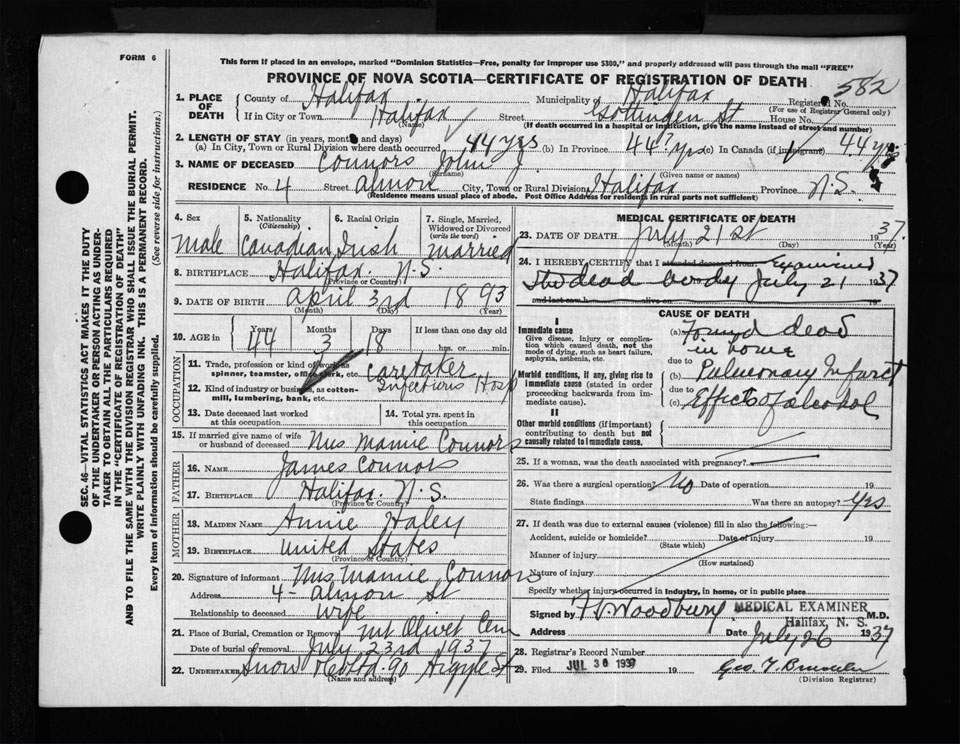 FORM 6
This form if placed in an envelope, marked "Dominion Statistics—Free, penalty for improper use $300," and properly addressed will pass through the mail "FREE"
PROVINCE OF NOVA SCOTIA—CERTIFICATE OF REGISTRATION OF DEATH
582
1. PLACE OF DEATH
County of Halifax Municipality of Halifax Registered No.
(For use of Registrar General only)
If in City or Town Halifax Street Gottingen St House No.
(Name) (If death occurred in a hospital or institution, give the name instead of street and number)
2. LENGTH OF STAY (in years, months and days)
(a) In City, Town or Rural Division where death occurred 44 yrs (b) In Province 44 yrs (c) In Canada (if immigrant) 44 yrs
3. NAME OF DECEASED Connors John J
(Surname) (Given name or names)
RESIDENCE No. 4 Street Almon City, Town or Rural Division Halifax Province N.S.
(Residence means usual place of abode. Post Office Address for residents in rural parts not sufficient)
4. Sex
Male
5. Nationality (Citizenship)
Canadian
6. Racial Origin
Irish
7. Single, Married, Widowed or Divorced (write the word)
Married
8. BIRTHPLACE Halifax. N.S.
(Province or Country)
9. DATE OF BIRTH April 3rd 1893
(Month) (Day) (Year)
10. AGE in
Years Months Days If less than one day old
44 3 18 hrs. or min.
OCCUPATION
11. Trade, profession or kind of work as spinner, teamster, office clerk, etc. Caretaker
12. Kind of industry or business, as cotton-mill, lumbering, bank, etc. Infectious Hosp
13. Date deceased last worked at this occupation
14. Total yrs. spent in this occupation
15. If married give name of wife or husband of deceased Mrs Mamie Connors
FATHER
16. Name James Connors
17. Birthplace Halifax. N.S.
(Province or Country)
MOTHER
18. MAIDEN NAME Annie Haley
19. BIRTHPLACE United States
(Province or Country)
20. Signature of informant Mrs Mamie Connors
Address 4- Almon St
Relationship to deceased Wife
21. Place of Burial, Cremation or Removal Mt Olivet Cem
Date of burial or removal July 23rd 1937
22. UNDERTAKER Snow & Co Ltd 90 Argyle St
(Name and address)
MEDICAL CERTIFICATE OF DEATH
23. DATE OF DEATH July 21st 1937.
(Month) (Day) (Year)
24. I HEREBY CERTIFY that I attended deceased from Examined
the dead body July 21 1937
and last saw h alive on 19
CAUSE OF DEATH
I
Immediate cause
Give disease, injury or complication which caused death, not the mode of dying, such as heart failure, asphyxia, asthenia, etc.
(a) Found dead
in home
due to
Morbid conditions, if any, giving rise to immediate cause (stated in order proceeding backwards from immediate cause).
(b) Pulmonary Infarct
due to
(c) Effects of alcohol
II
Other morbid conditions (if important) contributing to death but not causally related to immediate cause.
25. If a woman, was the death associated with pregnancy?
26. Was there a surgical operation? No Date of operation 19
State findings Was there an autopsy? Yes
27. If death was due to external causes (violence) fill in also the following:—
Accident, suicide or homicide? Date of injury 19
(State which)
Manner of injury
(How sustained)
Nature of injury
Specify whether injury occurred in Industry, in home, or in public place
Signed by F. V. Woodbury MEDICAL EXAMINER M.D.
Halifax, N. S.
Address Date July 26 1937
28. Registrar's Record Number
29. Filed JUL 30 1937 19
(Division Registrar)
SEC. 46—VITAL STATISTICS ACT MAKES IT THE DUTY
OF THE UNDERTAKER OR PERSON ACTING AS UNDER-
TAKER TO OBTAIN ALL THE PARTICULARS REQUIRED
IN THE "CERTIFICATE OF REGISTRATION OF DEATH"
AND TO FILE THE SAME WITH THE DIVISION REGISTRAR WHO SHALL ISSUE THE BURIAL PERMIT.
WRITE PLAINLY WITH UNFADING INK. THIS IS A PERMANENT RECORD.
Every item of information should be carefully supplied. (See reverse side for instructions.)